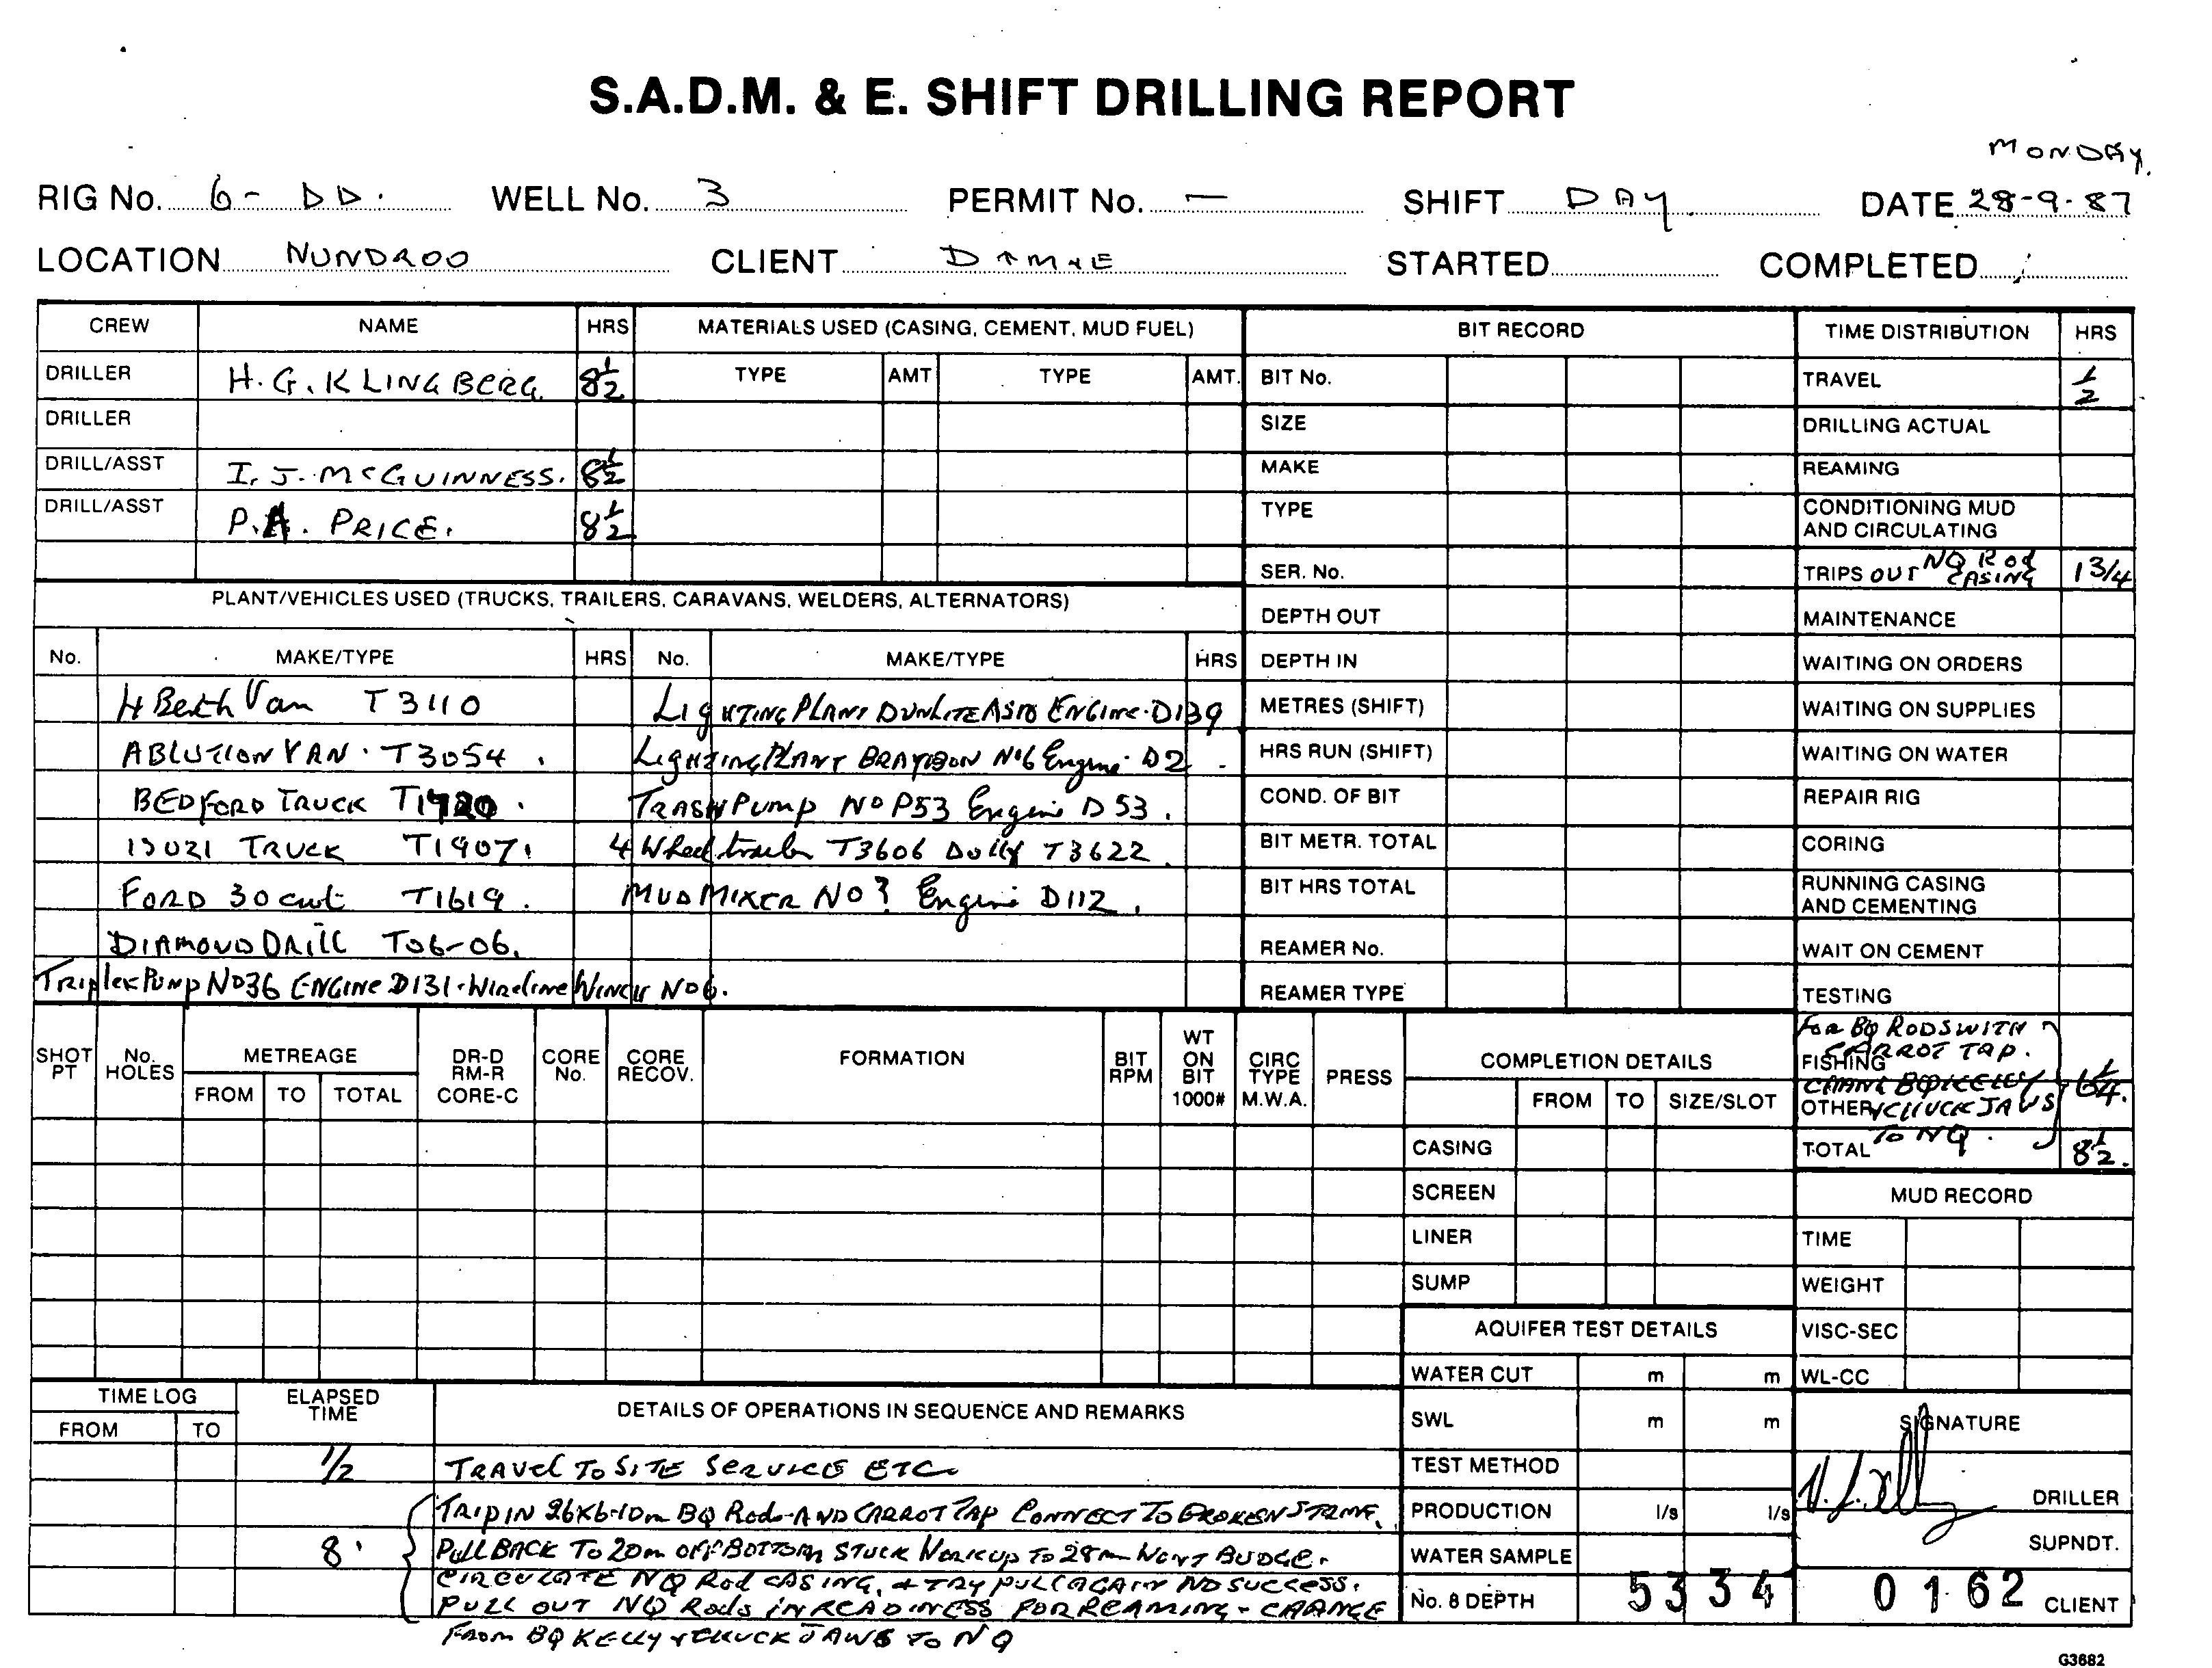 S.A.D.M. & E. SHIFT DRILLING REPORT
MONDAY.
RIG No. 6 - DD. WELL No. 3 PERMIT No. — SHIFT DAY. DATE 28-9-87
LOCATION NUNDROO CLIENT STARTED COMPLETED
CREW NAME HRS MATERIALS USED (CASING, CEMENT, MUD FUEL) BIT RECORD TIME DISTRIBUTION HRS
DRILLER H.G. KLINGBERG. 8 1/2 TYPE AMT TYPE AMT. BIT No. TRAVEL 1/2
DRILLER SIZE DRILLING ACTUAL
DRILL/ASST I. J. McGUINNESS. 8 1/2 MAKE REAMING
DRILL/ASST P.A. PRICE. 8 1/2 TYPE CONDITIONING MUD
AND CIRCULATING
SER. No. TRIPS OUT NQ Rod CASING 1 3/4
PLANT/VEHICLES USED (TRUCKS, TRAILERS, CARAVANS, WELDERS, ALTERNATORS) DEPTH OUT MAINTENANCE
No. MAKE/TYPE HRS No. MAKE/TYPE HRS DEPTH IN WAITING ON ORDERS
4 Berth Van T3110 LIGHTING PLANT DUNLITE ENGINE D139 METRES (SHIFT) WAITING ON SUPPLIES
ABLUTION VAN. T3054. Lighting PLANT No6 Engine D2 HRS RUN (SHIFT) WAITING ON WATER
BEDFORD TRUCK T1920. TRASH Pump No P53 Engine D53. COND. OF BIT REPAIR RIG
TRUCK T1907. 4 Wheel trailer T3606 Dolly T3622. BIT METR. TOTAL CORING
FORD 30 cwt T1619. MUD MIXER No ? Engine D112. BIT HRS TOTAL RUNNING CASING
AND CEMENTING
DIAMOND DRILL T06-06. REAMER No. WAIT ON CEMENT
Triplex Pump No36 ENGINE D131. Wireline Winch No6. REAMER TYPE TESTING
SHOT PT No. HOLES METREAGE DR-D RM-R CORE-C CORE No. CORE RECOV. FORMATION BIT RPM WT ON BIT 1000# CIRC TYPE M.W.A. PRESS COMPLETION DETAILS
FROM TO TOTAL FROM TO SIZE/SLOT
FOR BQ RODS WITH
CARROT TAP.
FISHING
CHANGE BQ KELLY 6 1/4.
OTHER + CHUCK JAWS
TO NQ.
CASING TOTAL 8 1/2.
SCREEN MUD RECORD
LINER TIME
SUMP WEIGHT
AQUIFER TEST DETAILS VISC-SEC
WATER CUT m m WL-CC
TIME LOG ELAPSED TIME DETAILS OF OPERATIONS IN SEQUENCE AND REMARKS SWL m m SIGNATURE
FROM TO
1/2 TRAVEL TO SITE SERVICE ETC TEST METHOD
TRIP IN 26x6.10m BQ Rods AND CARROT TAP CONNECT TO BROKEN STRING. PRODUCTION l/s l/s DRILLER
8. PULL BACK TO 20m OFF BOTTOM STUCK Work up to 28m WONT BUDGE. WATER SAMPLE SUPNDT.
CIRCULATE NQ Rod CASING, + TRY PULL AGAIN NO SUCCESS.
PULL OUT NQ Rods IN READINESS FOR REAMING - CHANGE No. 8 DEPTH 5334 0162 CLIENT
FROM BQ KELLY + CHUCK JAWS TO NQ
G3682